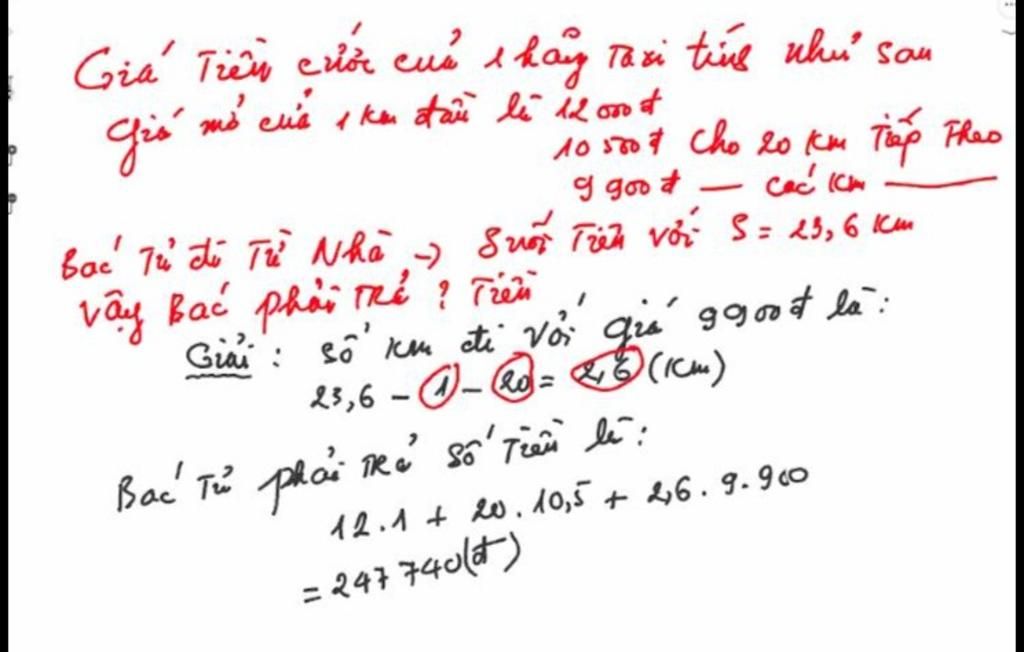 Giá Tiền cước của 1 hãng Taxi tính như sau
giá mở cửa 1 km đầu là 12 000 đ
10 500 đ cho 20 km Tiếp Theo
9 900 đ — các km —
Bác Tư đi Từ Nhà -> Suối Tiên với S = 23,6 km
vậy Bác phải Trả ? Tiền
Giải : số km đi với giá 9900 đ là :
23,6 - 1 - 20 = 2,6 (km)
Bác Tư phải Trả số Tiền là :
12.1 + 20.10,5 + 2,6.9.900
= 247 740 (đ)